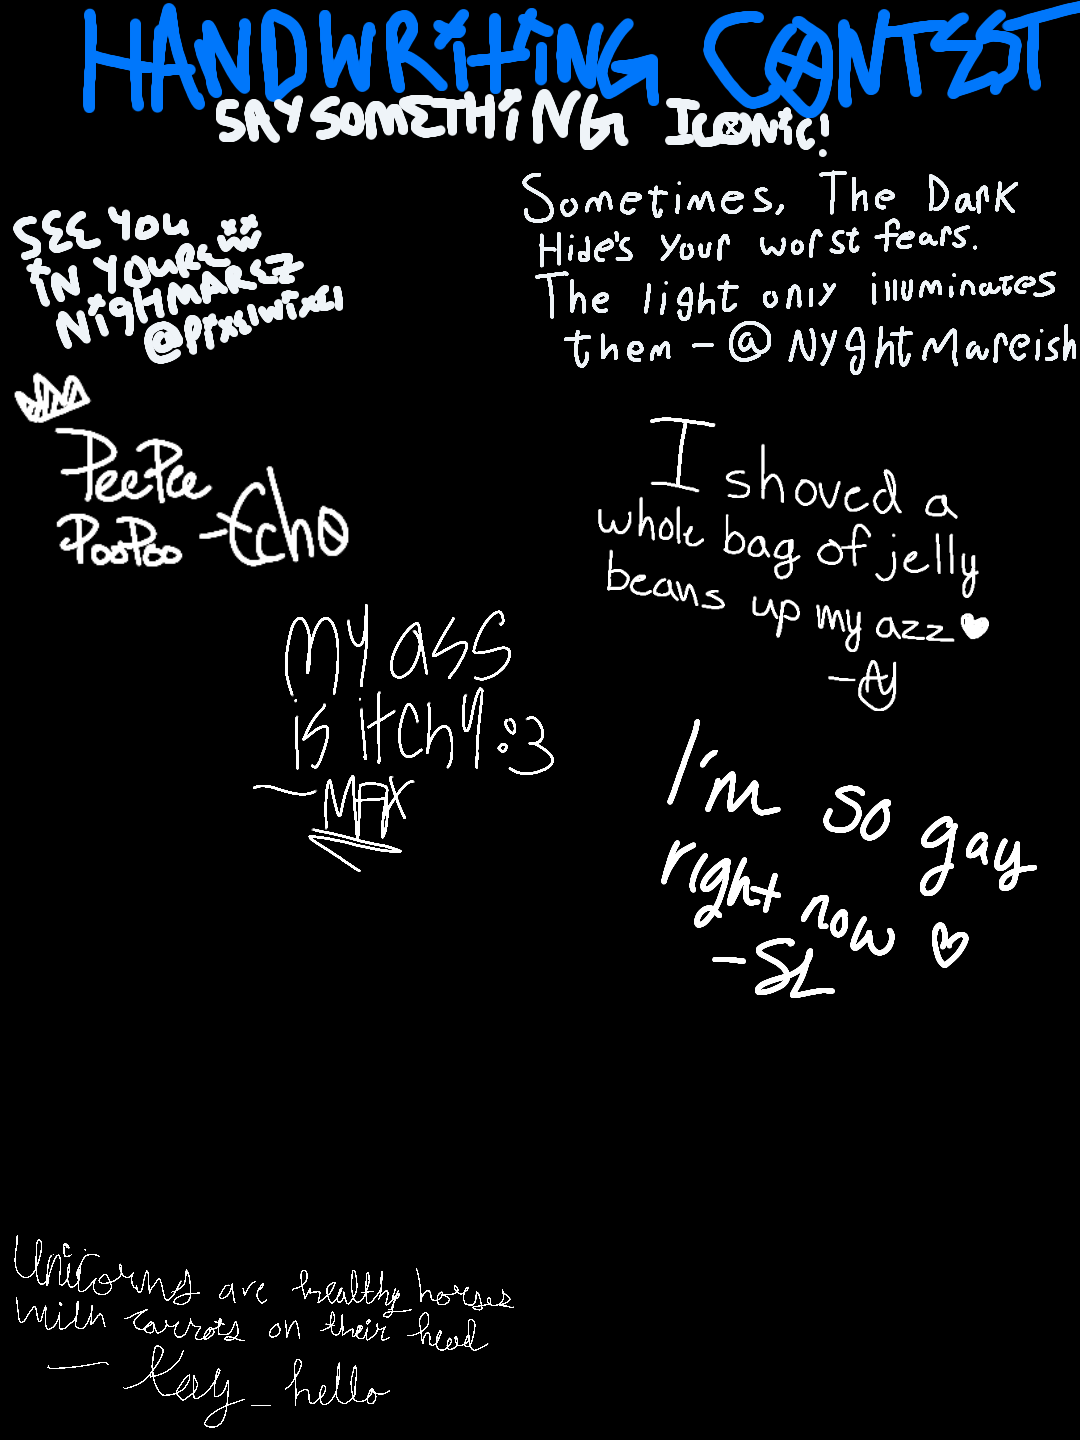 HANDWRITING CONTEST
SAY SOMETHING ICONIC!
SEE YOU
IN YOURE
NIGHMAREZ
@pixslwixsl
Sometimes, The Dark
Hide's your worst fears.
The light only illuminates
them - @NyghtMareish
PeePee
PooPoo -Echo
I shoved a
whole bag of jelly
beans up my azz ♥
- AJ
my ass
is itchy :3
- MAX
I'm so gay
right now ♡
- SL
Unicorns are healthy horses
with carrots on their head
- Kay_hello